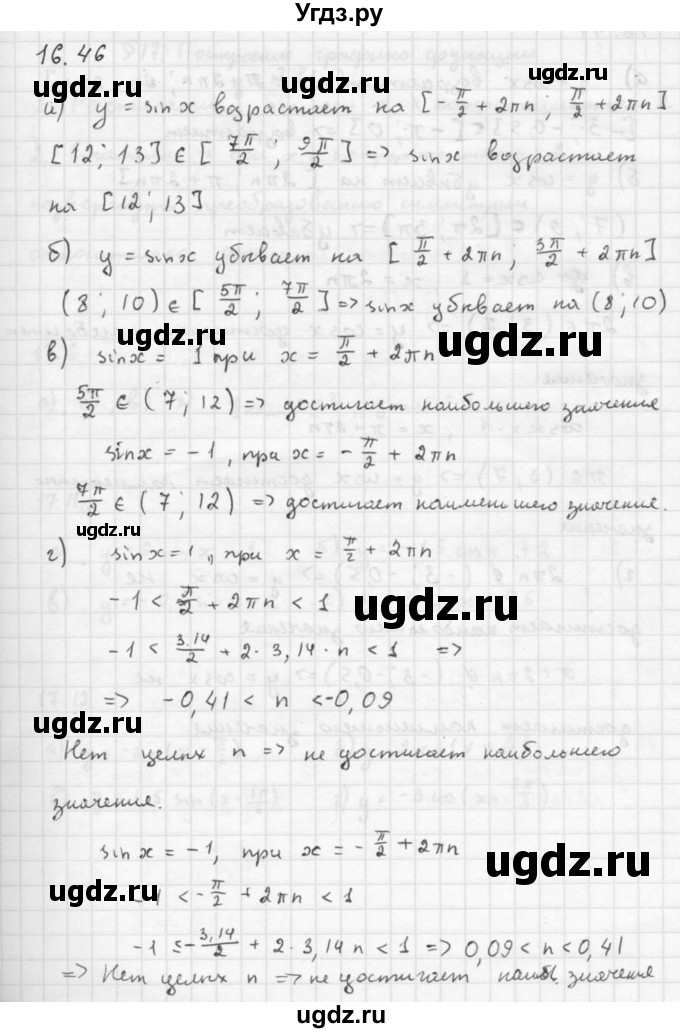 Угдз.ру
16.46
а) y = sin x возрастает на [-π/2 + 2πn ; π/2 + 2πn]
[12; 13] ∈ [7π/2 ; 9π/2] => sin x возрастает
на [12; 13]
ugdz.ru
ugdz.ru
б) y = sin x убывает на [π/2 + 2πn ; 3π/2 + 2πn]
(8; 10) ∈ [5π/2 ; 7π/2] => sin x убывает на (8; 10)
ugdz.ru
ugdz.ru
ugdz.ru
в) sin x = 1 при x = π/2 + 2πn
5π/2 ∈ (7; 12) => достигает наибольшего значения
sin x = -1, при x = -π/2 + 2πn
7π/2 ∈ (7; 12) => достигает наименьшего значение.
ugdz.ru
г) sin x = 1, при x = π/2 + 2πn
-1 < π/2 + 2πn < 1
ugdz.ru
-1 < 3,14/2 + 2·3,14·n < 1 =>
ugdz.ru
=> -0,41 < n < -0,09
ugdz.ru
Нет целых n => не достигает наибольшего
значение.
sin x = -1, при x = -π/2 + 2πn
ugdz.ru
-1 < -π/2 + 2πn < 1
ugdz.ru
-1 ≤ -3,14/2 + 2·3,14n < 1 => 0,09 < n < 0,41
=> Нет целых n => не достигает значение
ugdz.ru
ugdz.ru